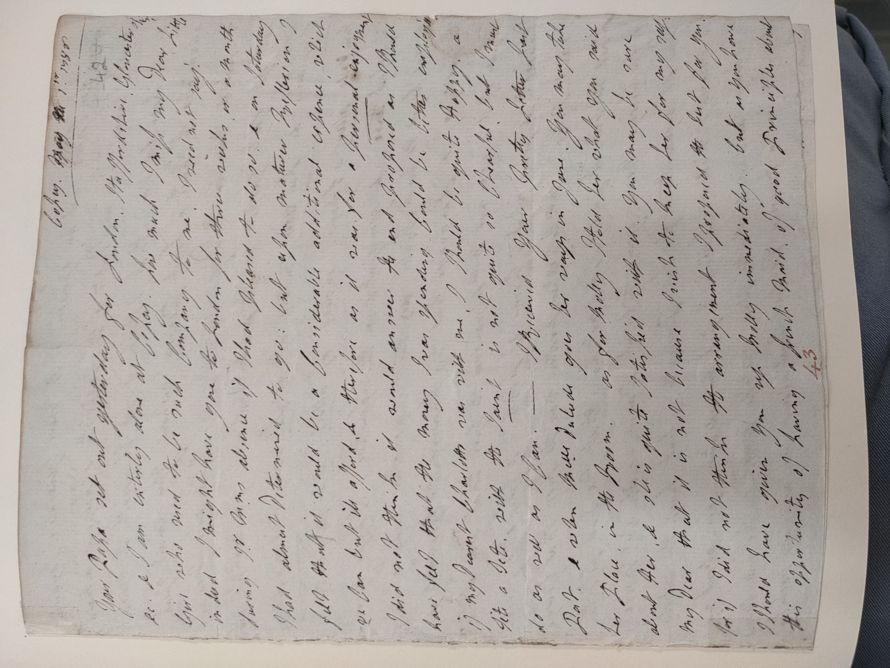 Copsy. May 1st 1758
42
Your Papa set out yesterday for London, Staffordshire, Gloucester
& I am entirely alone at Copsy. how much I miss my Dear Kitty
who used to be such Company to me. I need not say.
indeed I might have gone to London for three weeks or a month
during yr Papas absence if I had pleased to do so. & on Saturday
I had almost determined to go: but upon mature Reflexion I
felt that it would be a considerable additional expence, which
we can but ill afford. & therefore as it was for a personal enjoyment
I did not think it would answer the end proposed as I should
have felt that the money I was spending could be better employ'd
if my Dearest Charlotte was with me, I should be quite happy, a
tête a tête with the Saint is not quite so chearful. but I must
do as well as I can. — I Received your pretty letter last
Post. & when these Ladies goes her ways in June. You may take
her Place, in the Room. as for Molly I told her what you said
about her. & she is quite satisfied with it. You may be sure
my Dear that it is not because I wish to keep her for my self
for if I did not think the arrangement I proposed the best for you.
I should have given you up Molly immediately. but as you have
this opportunity of having a french maid. of good Principles about
43